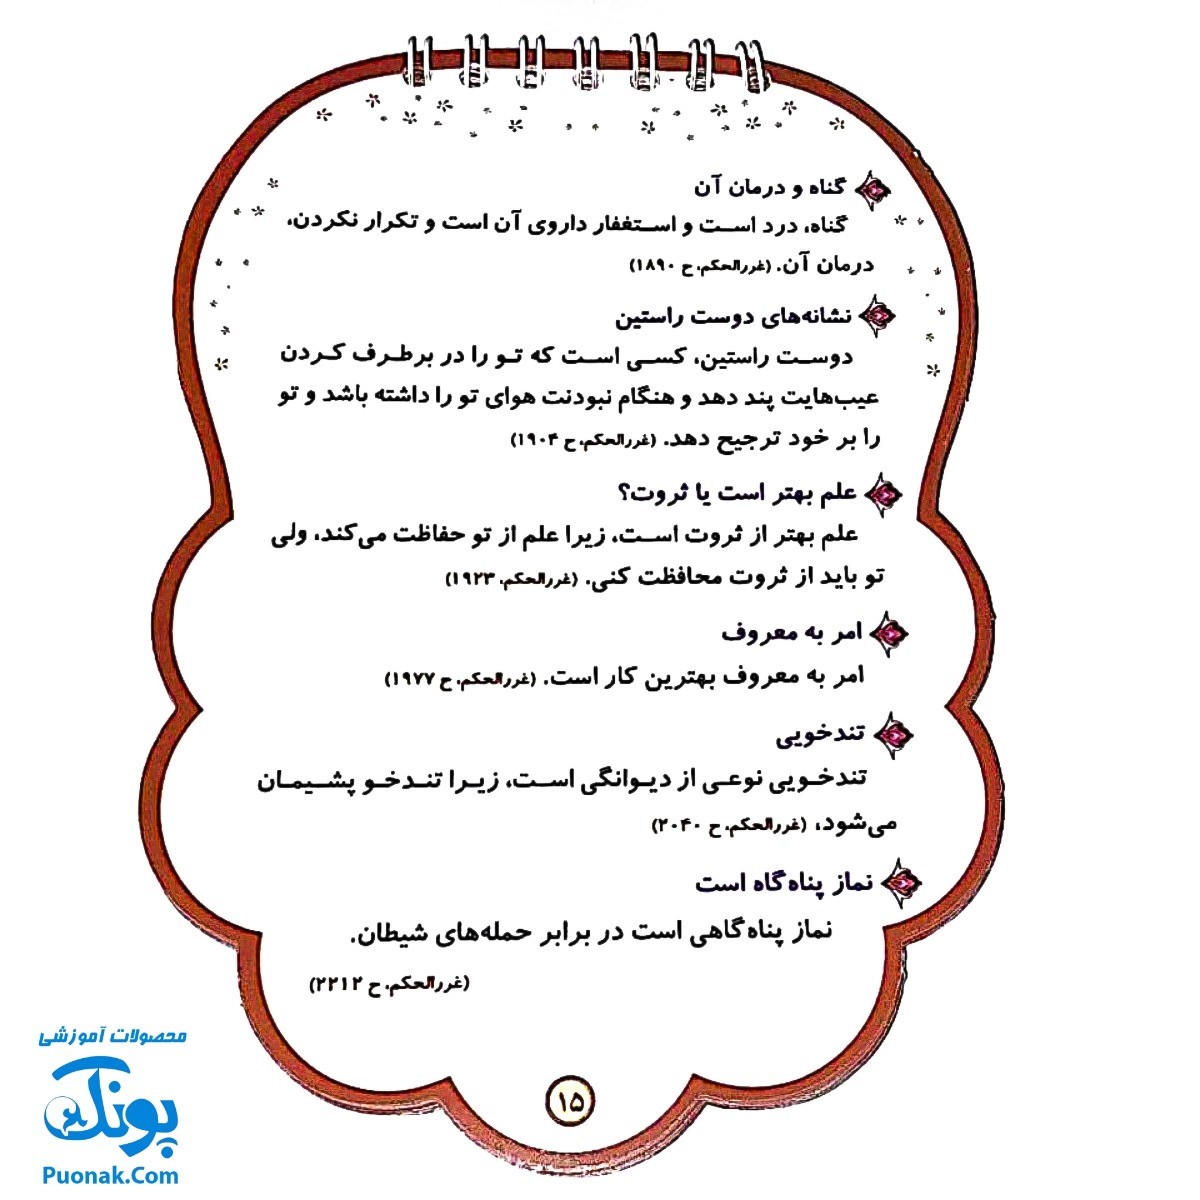 گناه و درمان آن
گناه، درد است و استغفار داروی آن است و تکرار نکردن،
درمان آن. (غررالحکم، ح ۱۸۹۰)
نشانه‌های دوست راستین
دوست راستین، کسی است که تو را در برطرف کردن
عیب‌هایت پند دهد و هنگام نبودنت هوای تو را داشته باشد و تو
را بر خود ترجیح دهد. (غررالحکم، ح ۱۹۰۴)
علم بهتر است یا ثروت؟
علم بهتر از ثروت است، زیرا علم از تو حفاظت می‌کند، ولی
تو باید از ثروت محافظت کنی. (غررالحکم، ۱۹۲۳)
امر به معروف
امر به معروف بهترین کار است. (غررالحکم، ح ۱۹۷۷)
تندخویی
تندخویی نوعی از دیوانگی است، زیرا تندخو پشیمان
می‌شود، (غررالحکم، ح ۲۰۴۰)
نماز پناه‌گاه است
نماز پناه‌گاهی است در برابر حمله‌های شیطان.
(غررالحکم، ح ۲۲۱۲)
۱۵
محصولات آموزشی
پونک
Puonak.Com